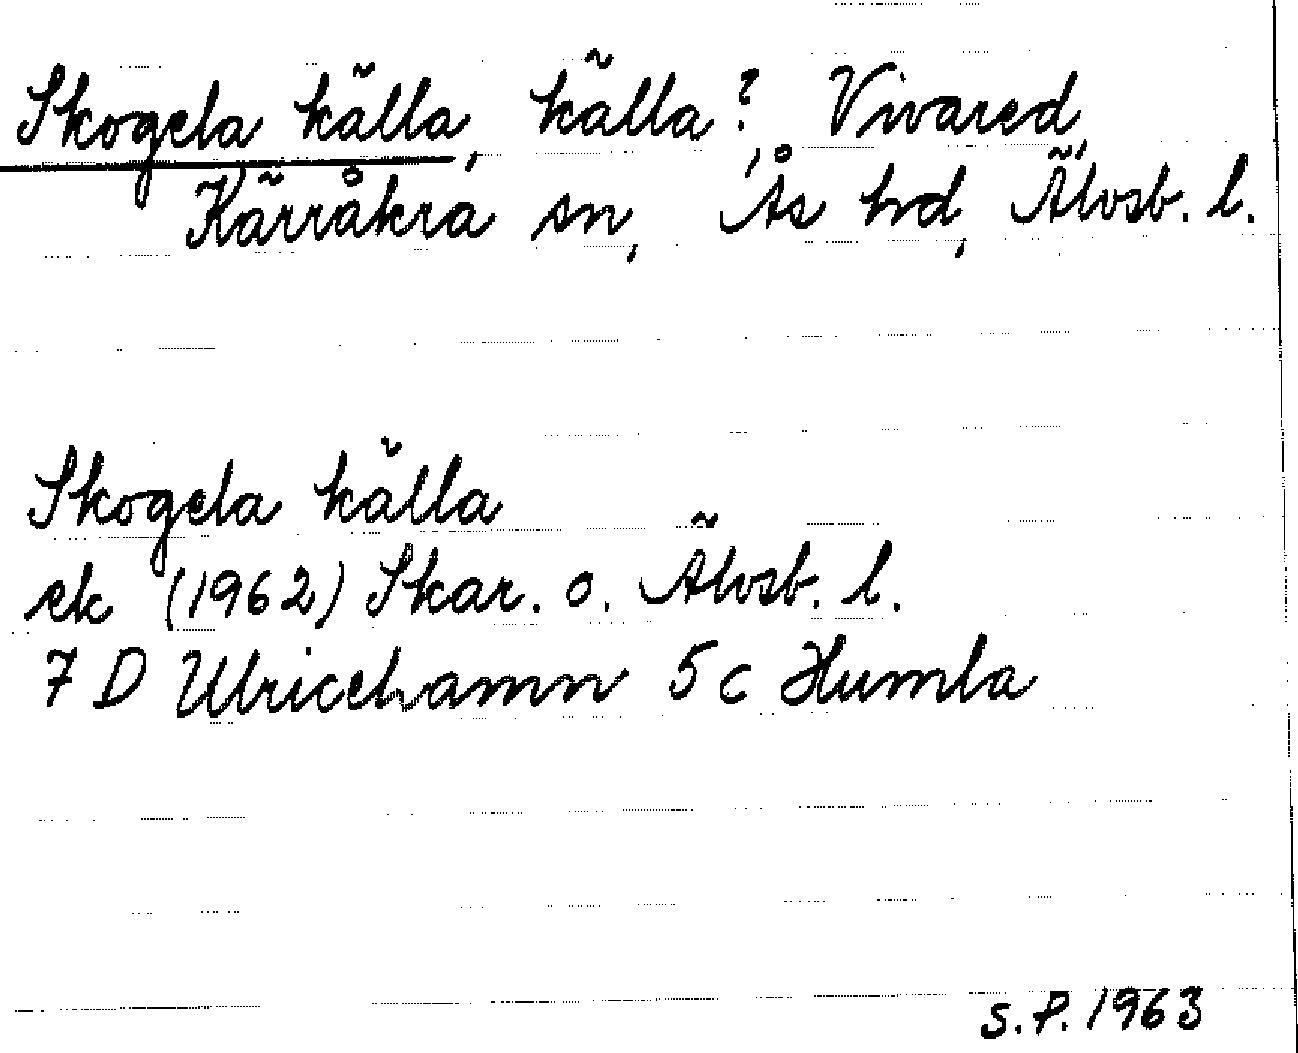 Skogela källa, källa?, Vivared,
Kärråkra sn, Ås hd, Älvsb. l.
Skogela källa
ek (1962) Skar. o. Älvsb. l.
7 D Ulricehamn 5 c Humla
S.P. 1963